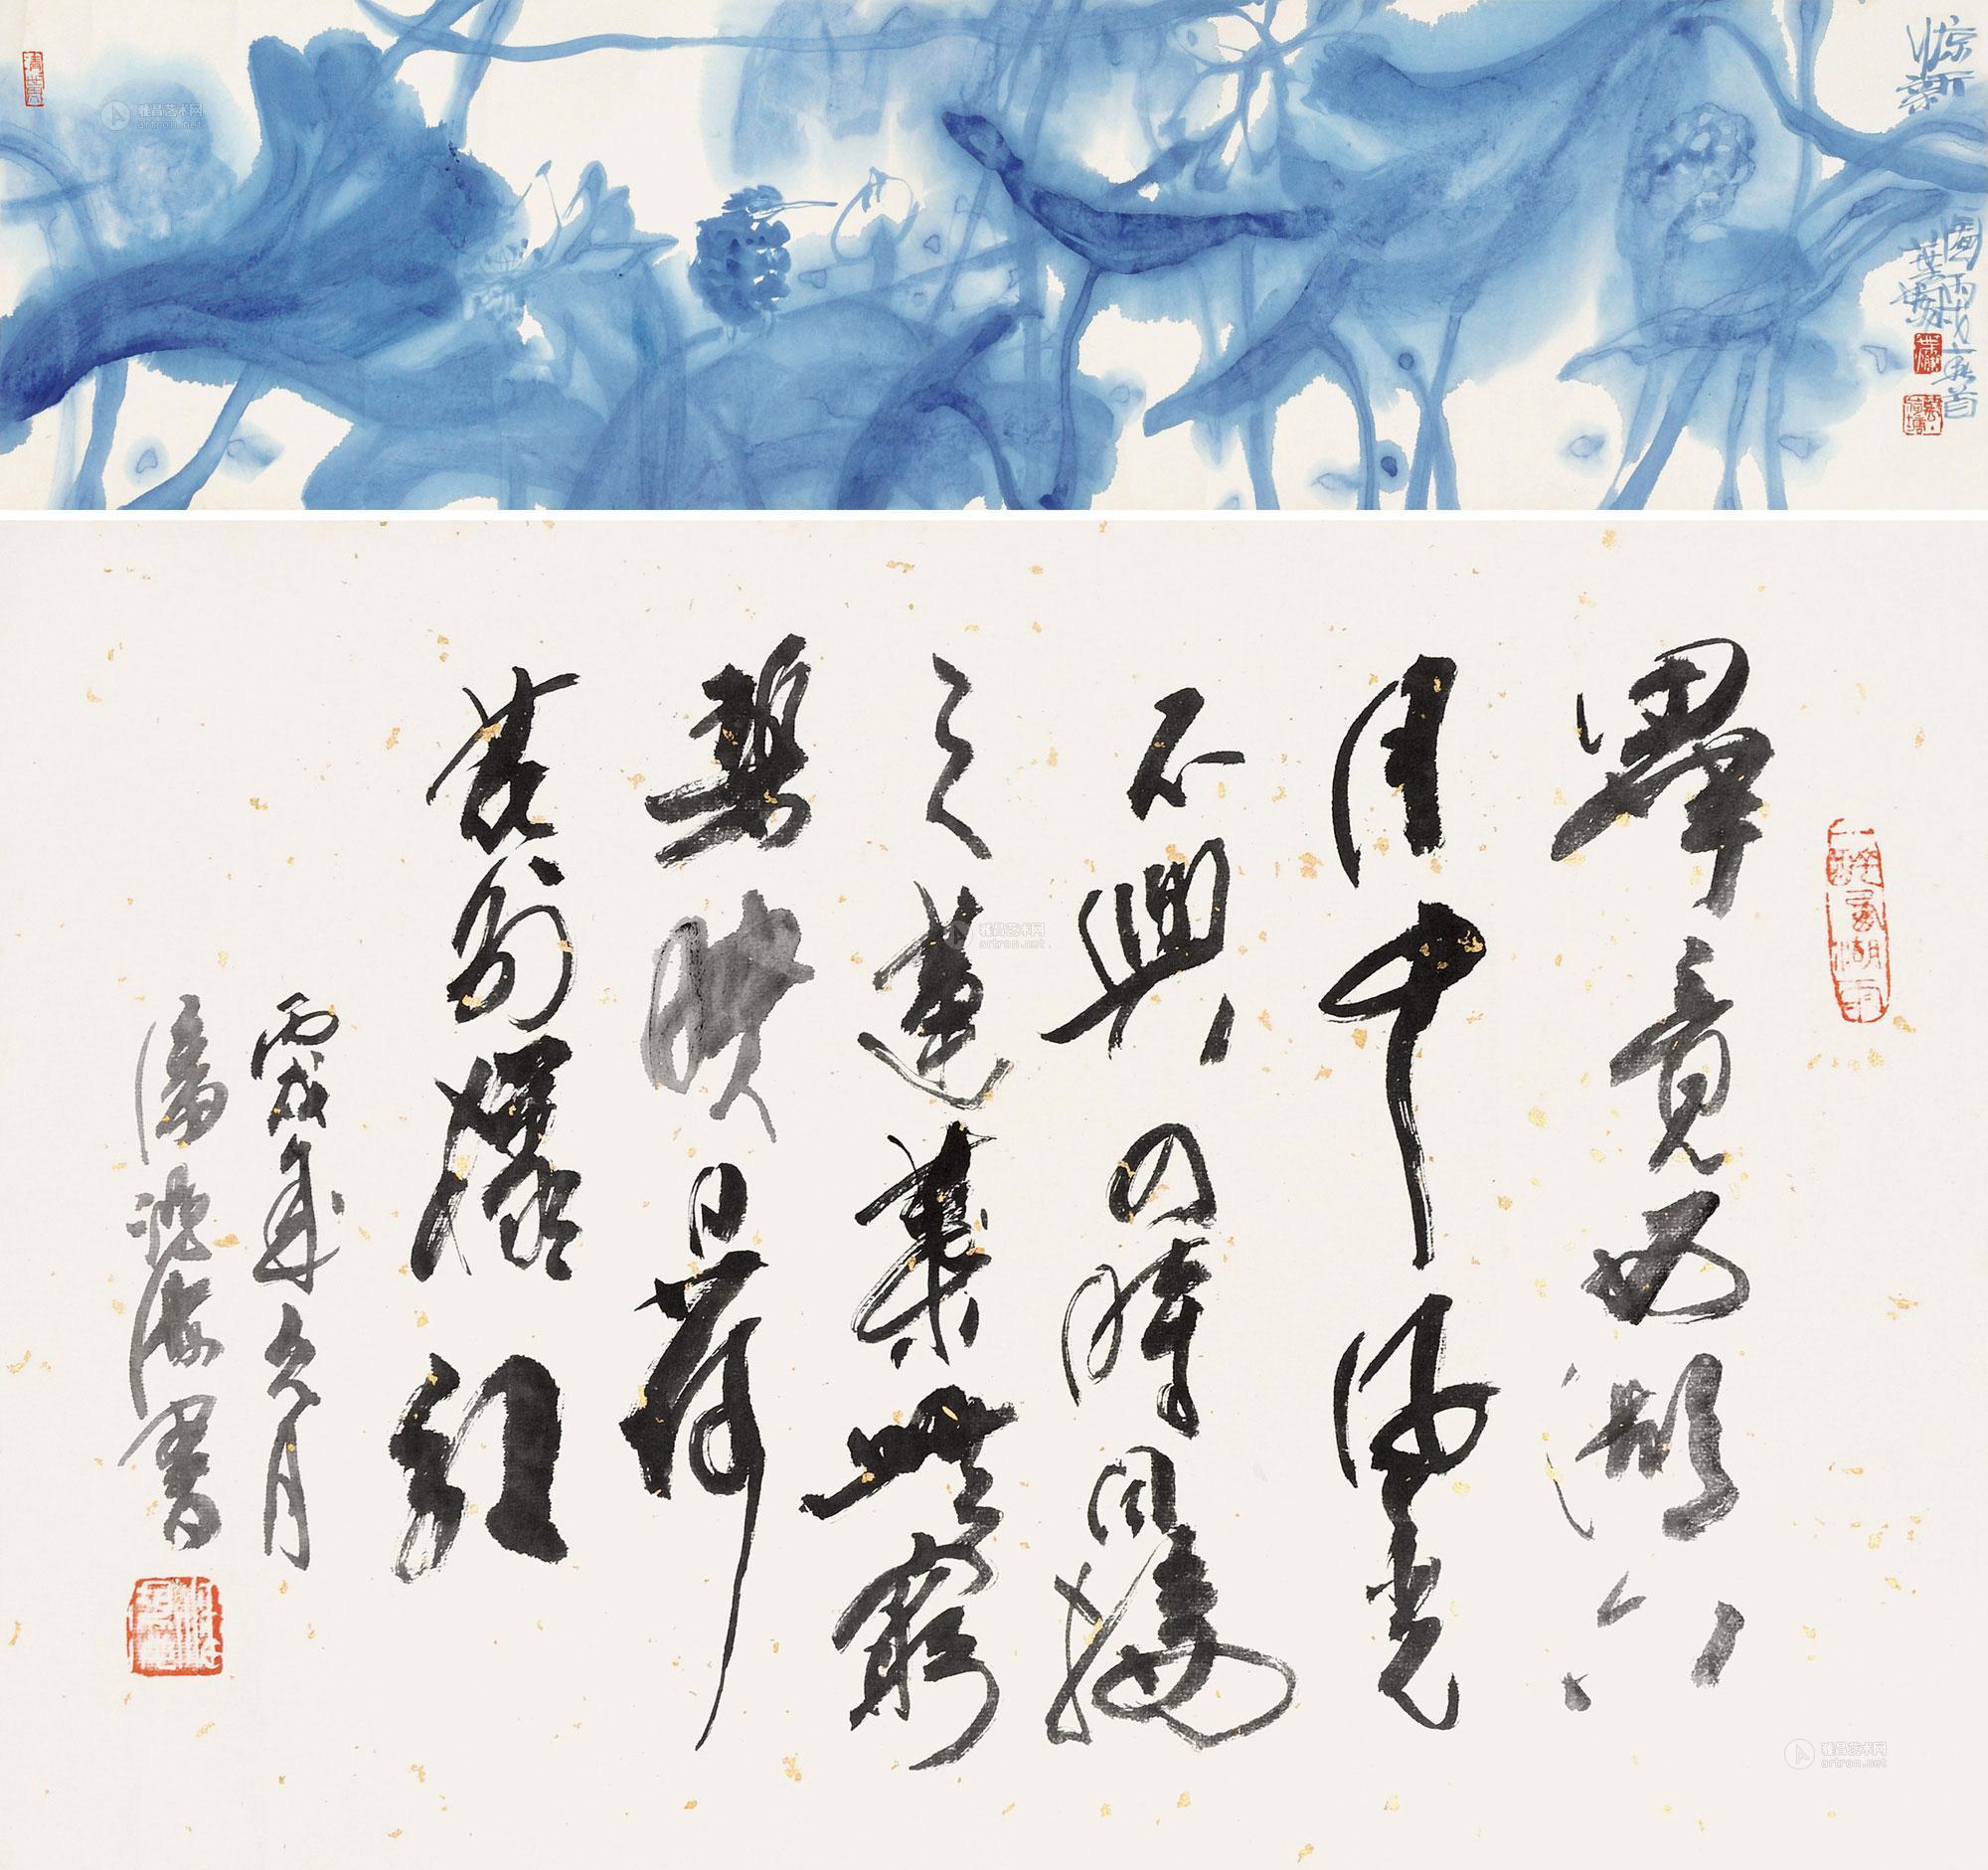 畢竟西湖六
月中風光
不與四時同接
天蓮葉無窮
碧映日荷
花別樣紅
丙戌年六月
潘鴻海書
雅昌艺术网
artron.net
雅昌艺术网
artron.net
雅昌艺术网
artron.net